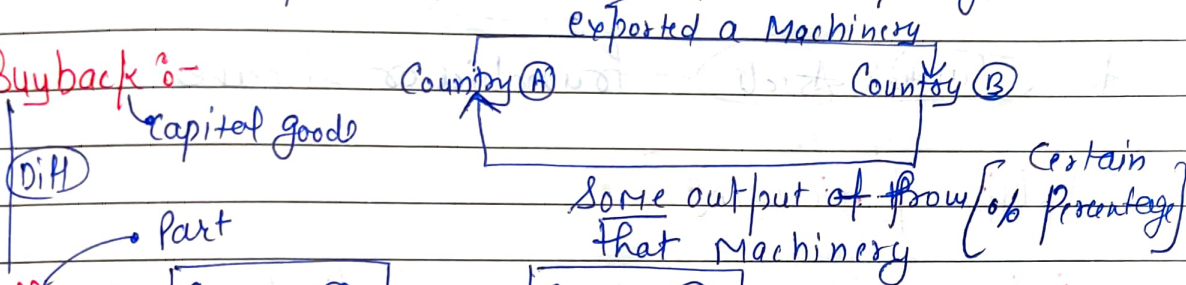 exported a Machinery
Buyback :-
Country A
Country B
capital goods
Diff
Some output of from/of
that Machinery
[Certain
% Percentage]
Part